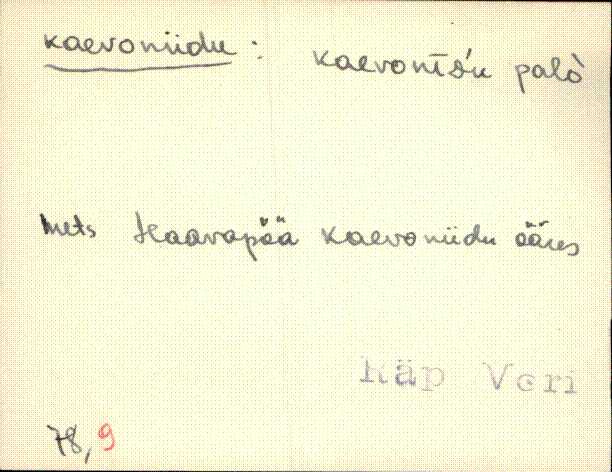 kaevoniidu : kaevonīd́u palò
mets Haavapää kaevoniidu ääres
Räp Veri
78,9